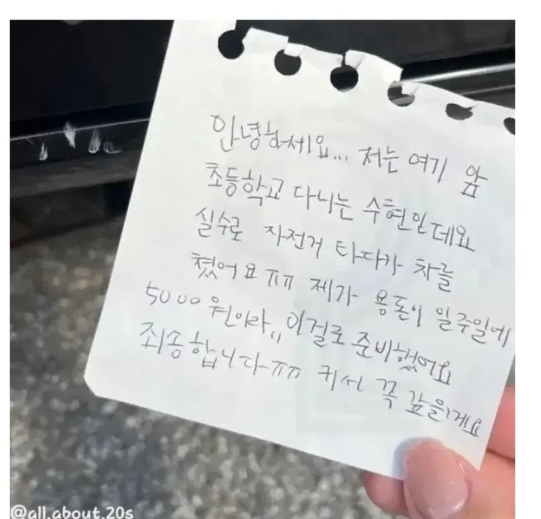 안녕하세요... 저는 여기 앞
초등학교 다니는 수현인데요
실수로 자전거 타다가 차를
쳤어요ㅠㅠ 제가 용돈이 일주일에
5000원이라,, 이걸로 준비했어요
죄송합니다ㅠㅠ 커서 꼭 갚을게요
@all.about.20s